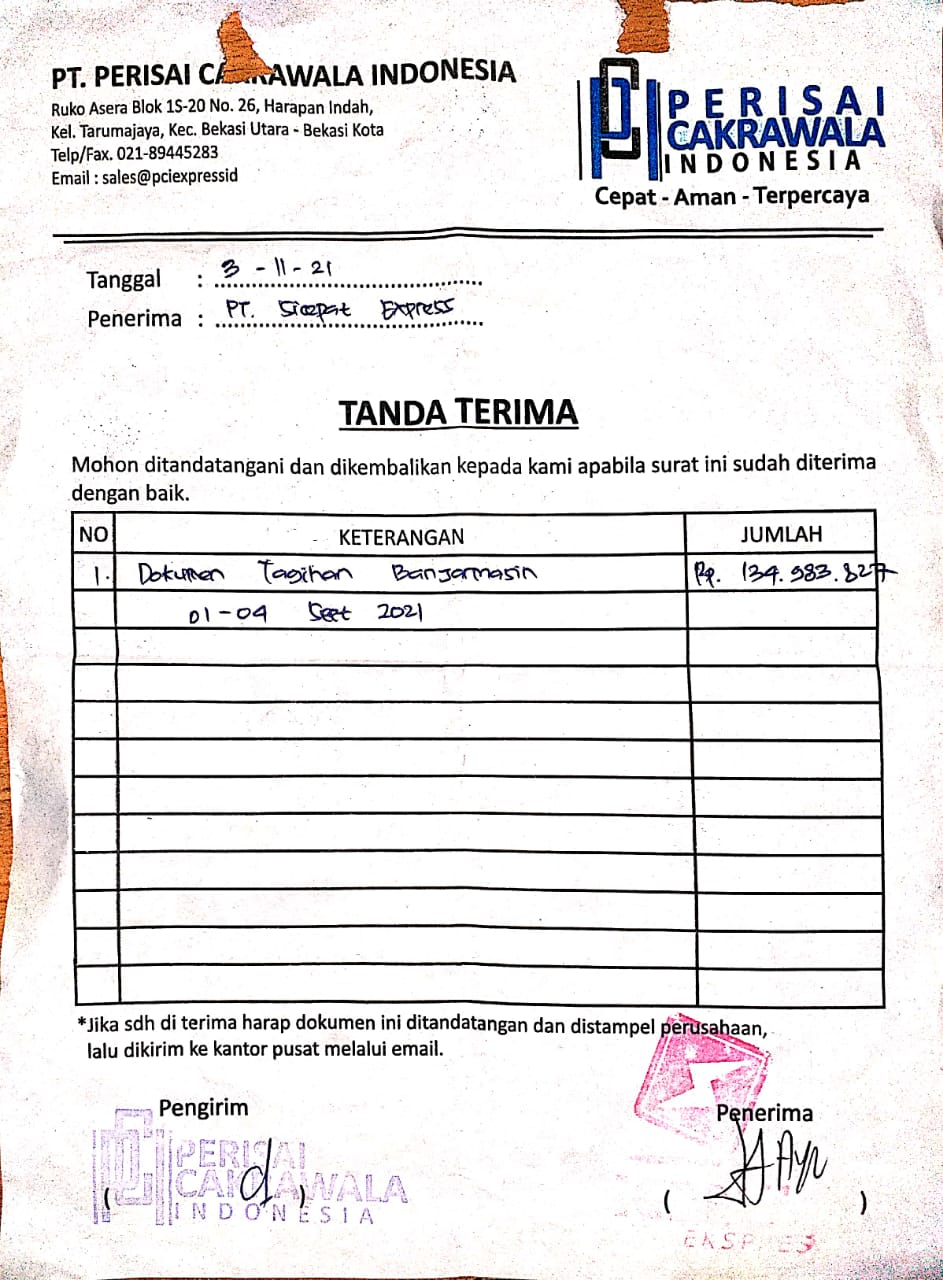 PT. PERISAI CAKRAWALA INDONESIA
Ruko Asera Blok 1S-20 No. 26, Harapan Indah,
Kel. Tarumajaya, Kec. Bekasi Utara - Bekasi Kota
Telp/Fax. 021-89445283
Email : sales@pciexpressid
PERISAI
CAKRAWALA
INDONESIA
Cepat - Aman - Terpercaya
Tanggal : 3 - 11 - 21
Penerima : PT. Sicepat Express
TANDA TERIMA
Mohon ditandatangani dan dikembalikan kepada kami apabila surat ini sudah diterima
dengan baik.
NO KETERANGAN JUMLAH
1. Dokumen Tagihan Banjarmasin Rp. 134.983.827
01-04 2021
*Jika sdh di terima harap dokumen ini ditandatangan dan distampel perusahaan,
lalu dikirim ke kantor pusat melalui email.
Pengirim
Penerima
PERISAI
CAKRAWALA
INDONESIA
( )
( )